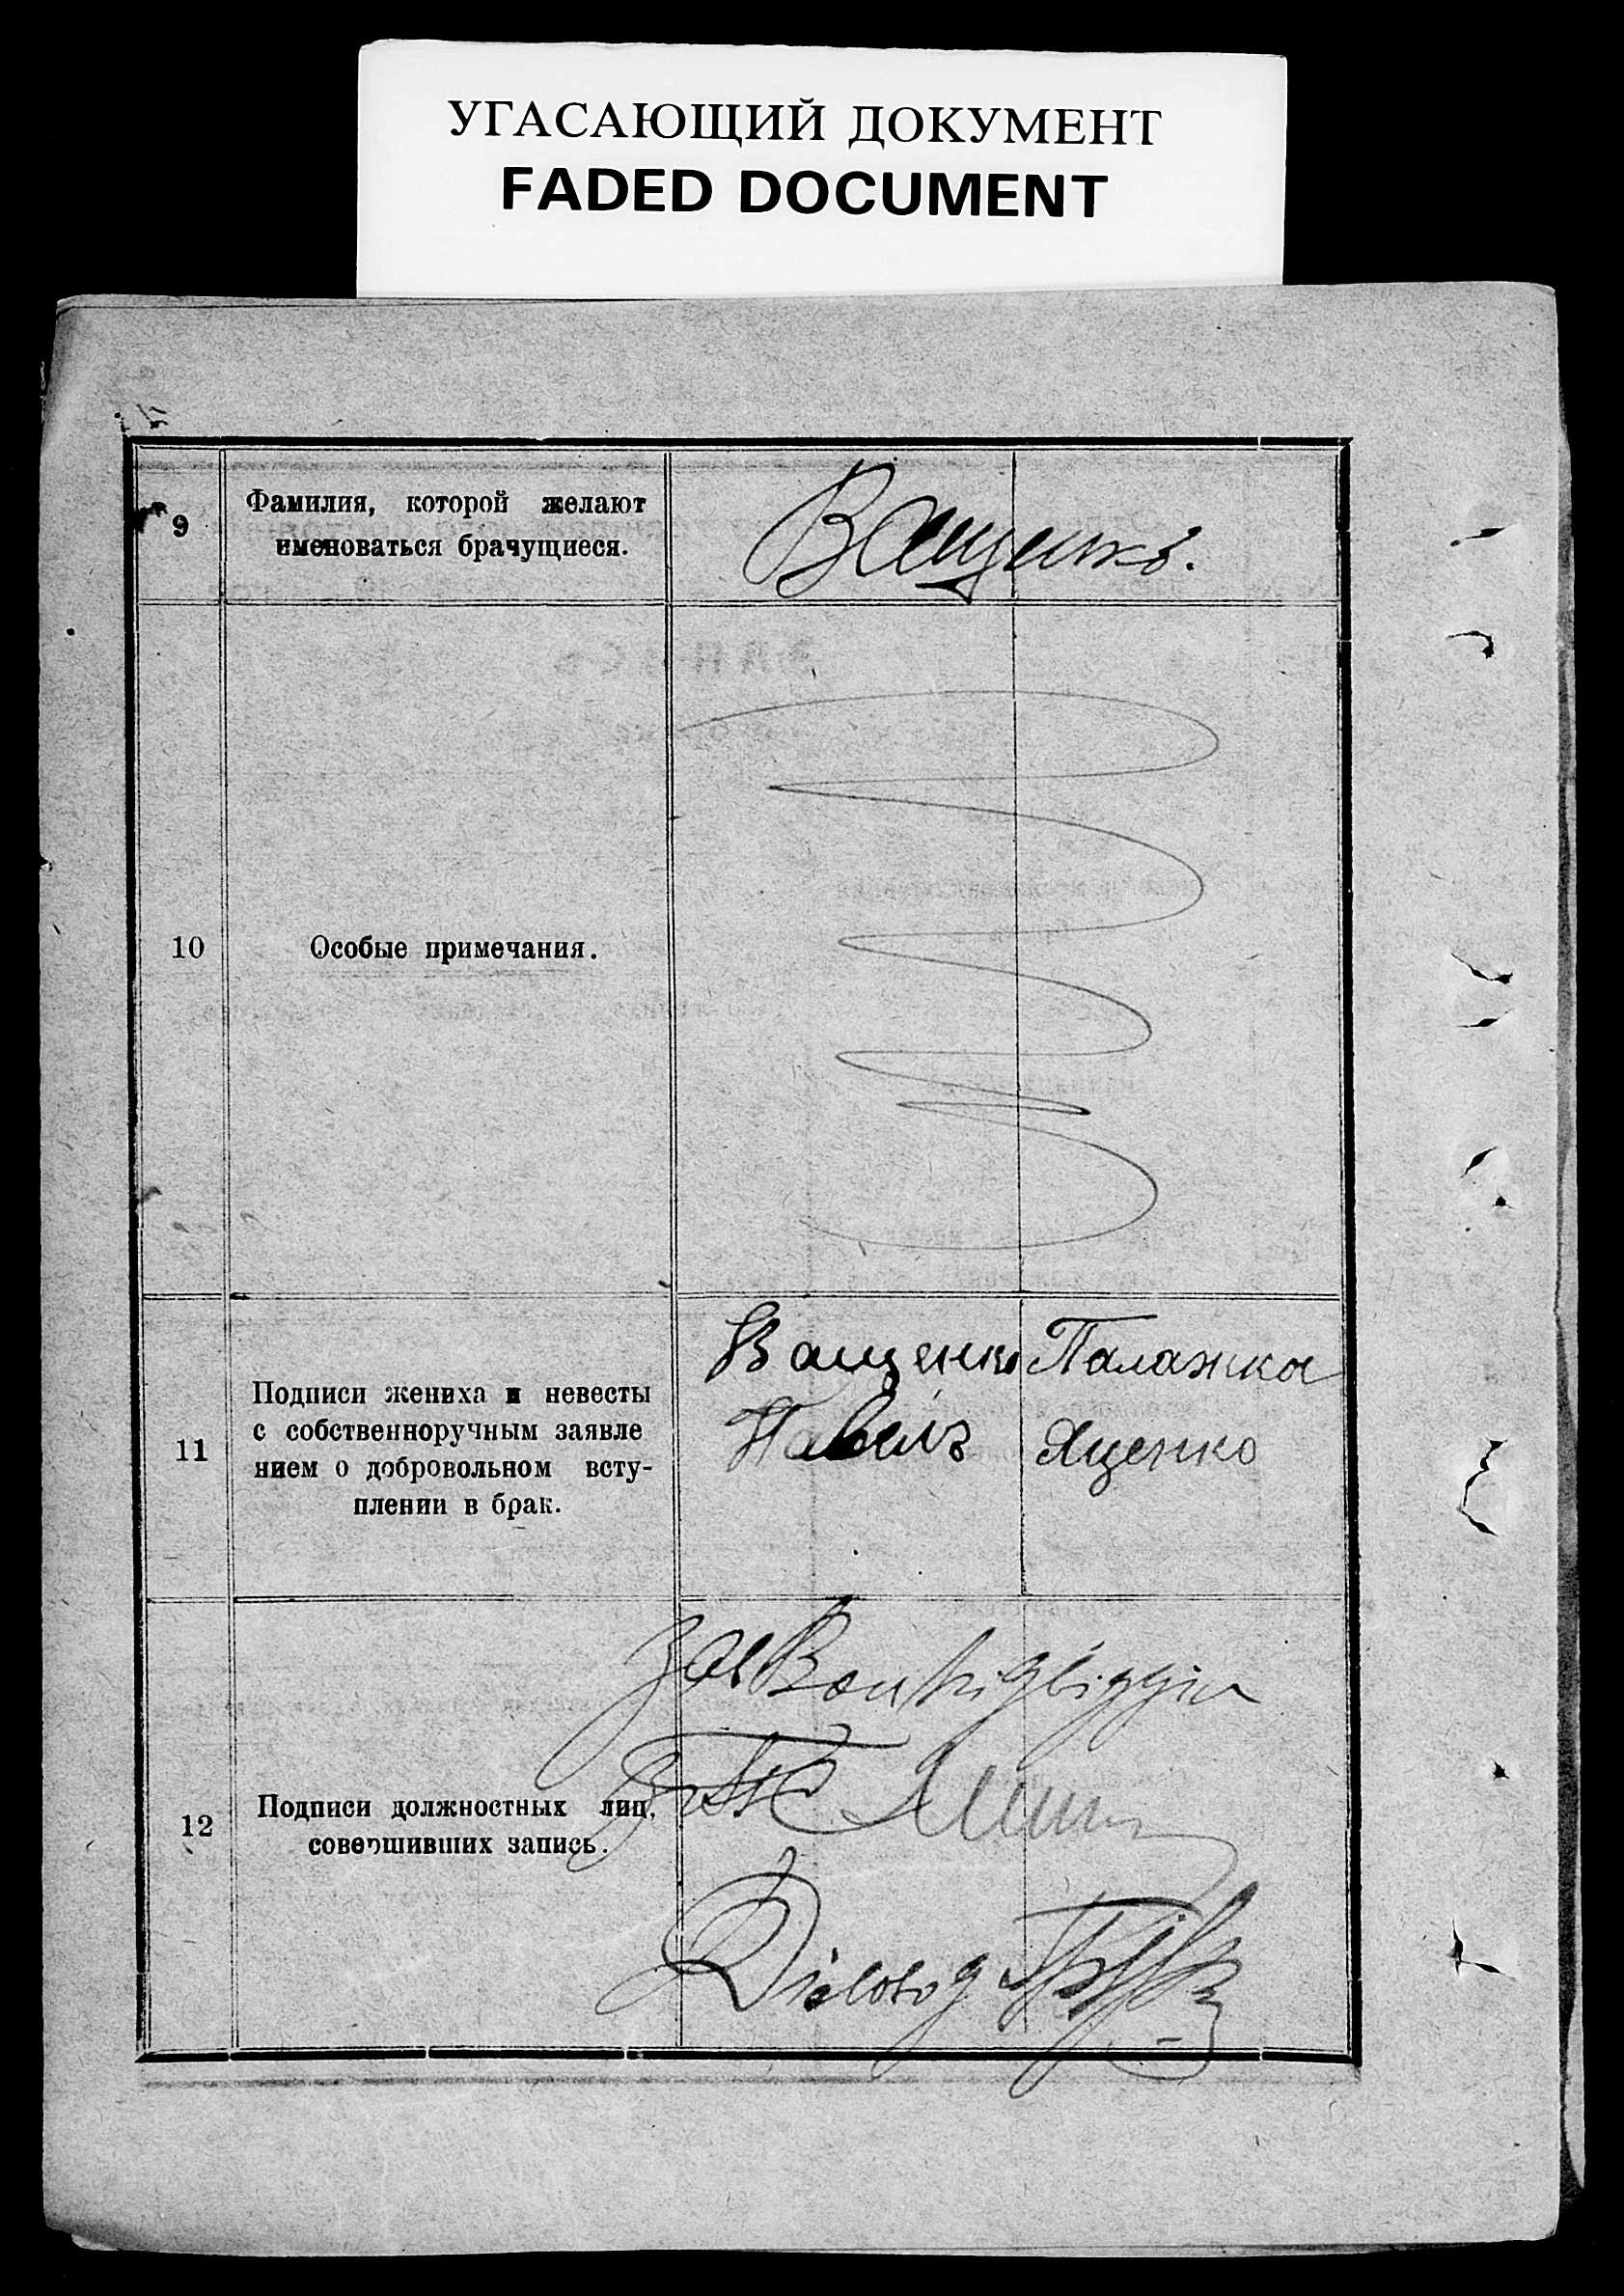 УГАСАЮЩИЙ ДОКУМЕНТ
FADED DOCUMENT
9
Фамилия, которой желают
именоваться брачущиеся.
Ващенко.
10
Особые примечания.
11
Подписи жениха и невесты
с собственноручным заявле
нием о добровольном всту-
плении в брак.
Ващенко
Павелъ
Палажка
Яценко
12
Подписи должностных лиц,
совершивших запись.
Зав
Діловод